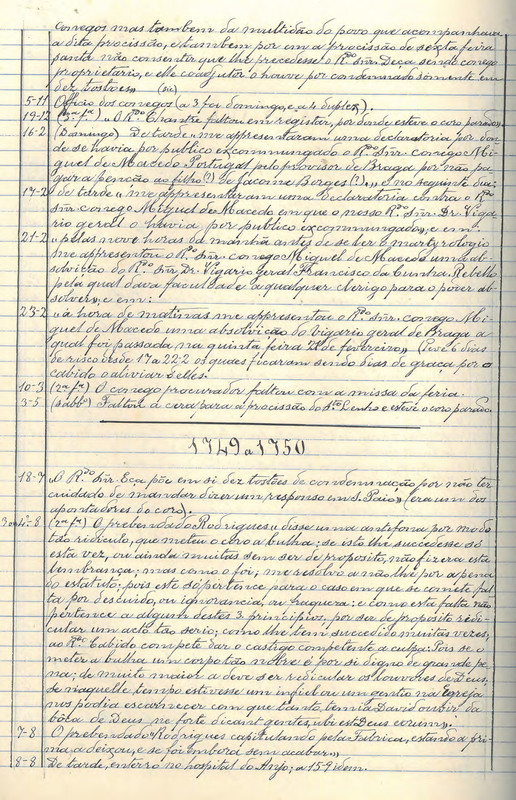 conegos mas tambem da multidão do povo que acompanhava
a dita procissão, e tambem por em a procissão de sexta feira
santa não consentir que lhe precedesse o R.do Snr. Deça sendo conego
proprietario, e elle coadjutor o houve por condemnado sómente em
dez tostoes» (sic)
5-11 Officio dos conegos (a 3 foi domingo, e a 4 duplex).
19-12 (5ª fª) «O R.do Chantre faltou em registar, por donde esteve o coro parado».
16-2 (Domingo) De tarde «me appresentaram uma declaratoria por don-
de se havia por publico excommungado o R.do Snr. conego Mi-
guel de Macedo Portugal pelo provisor de Braga por não pa-
gar a penção ao filho (?) de Jacome Borges (?)», e no seguinte dia:
17-2 de tarde «me appresentaram uma declaratoria contra o R.do
Snr. conego Miguel de Macedo em que o nosso R.do Snr. Dr. Viga-
rio geral o havia por publico excommungado», e em:
21-2 «pelas nove horas da manhã antes de se ler o martyrologio
me appresentou o R.do Snr. conego Miguel de Macedo uma ab-
solvição do R.do Snr. Dr. Vigario geral Francisco da Cunha Rebello
pela qual dava faculdade a qualquer clerigo para o poder ab-
solver», e em:
23-2 «á hora de matinas me appresentou o R.do Snr. conego Mi-
guel de Macedo uma absolvição do vigario geral de Braga a
qual foi passada na quinta feira 21 de fevereiro» (teve 6 dias
de risco desde 17 a 22-2 os quaes ficaram sendo dias de graça por o
cabido o aliviar delles.
10-3 (2ª fª) O conego procurador faltou com a missa da feria.
3-5 (Sabbº) Faltou a cera para a procissão do Stº Lenho e esteve o coro parado.
1749 a 1750
18-7 «O R.do Snr. Eça põe em si dez tostões de condemnação por não ter
cuidado de mandar dizer um responso em S. Paio» (era um dos
apontadores do coro).
3 ou 4-8 (2ª fª) O prebendado Rodrigues «disse uma antefona por modo
tão ridiculo, que meteu o coro a bulha: se isto lhe succedesse só
esta vez, ou ainda muitas sem ser de proposito, não fizera esta
lembrança; mas como o foi, me resolvo a não lhe por a pena
do estatuto: pois este só pertence para o caso em que se comete fal-
ta por descuido, ou ignorancia, ou fraqueza: e como esta falta não
pertence a algum destes 3 principios, por ser de proposito redi-
cular um acto tão serio; como lhe tem succedido muitas vezes;
ao R.do Cabido compete dar o castigo competente á culpa: Pois se o
meter a bulha um corpo tão nobre é por si digno de grande pe-
na; de muito maior a deve ser redicular os louvores de Deus,
se naquelle tempo estivesse um infiel ou um gentio na Egreja
nos podia escarnecer com que tanto temia David ouvir da
bôca de Deus ne forte dicant gentes, ubi est Deus eorum».
7-8 O prebendado Rodrigues capitulando pela Fabrica, estando a pri-
ma a deixou, e se foi embora sem acabar»
8-8 De tarde, enterro no hospital do Anjo; a 15 9 idem.